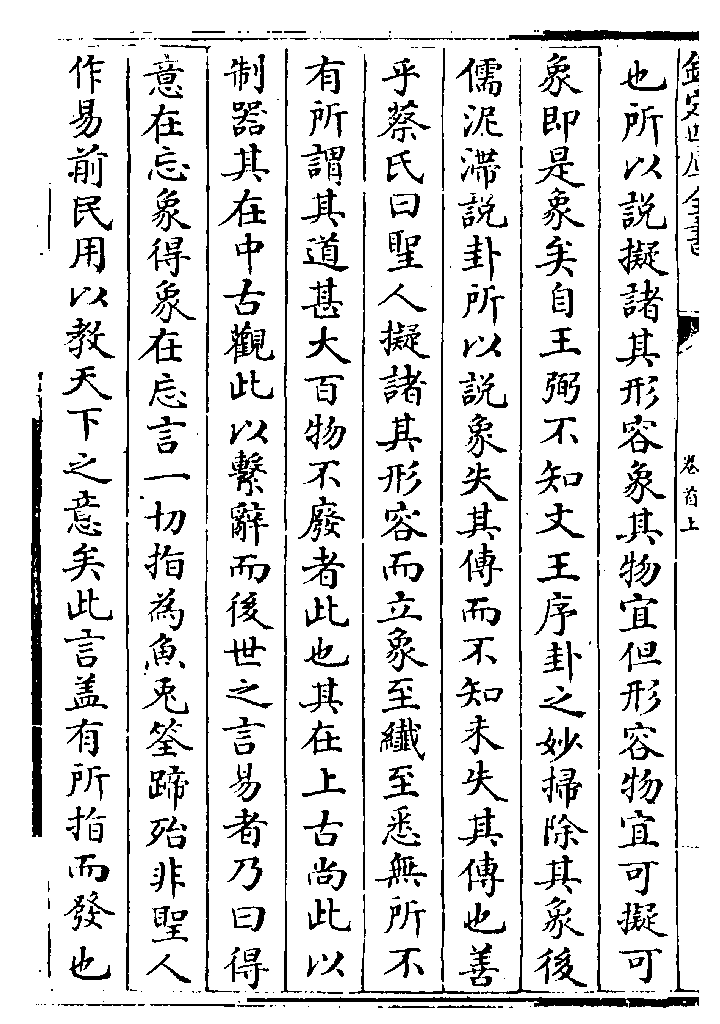 欽定四庫全書
卷首上
也所以說擬諸其形容象其物宜但形容物宜可擬可
象即是象矣自王弼不知文王序卦之妙掃除其象後
儒泥滯說卦所以說象失其傳而不知未失其傳也善
乎蔡氏曰聖人擬諸其形容而立象至纖至悉無所不
有所謂其道甚大百物不廢者此也其在上古尚此以
制器其在中古觀此以繫辭而後世之言易者乃曰得
意在忘象得象在忘言一切指為魚兎筌蹄殆非聖人
作易前民用以教天下之意矣此言盖有所指而發也